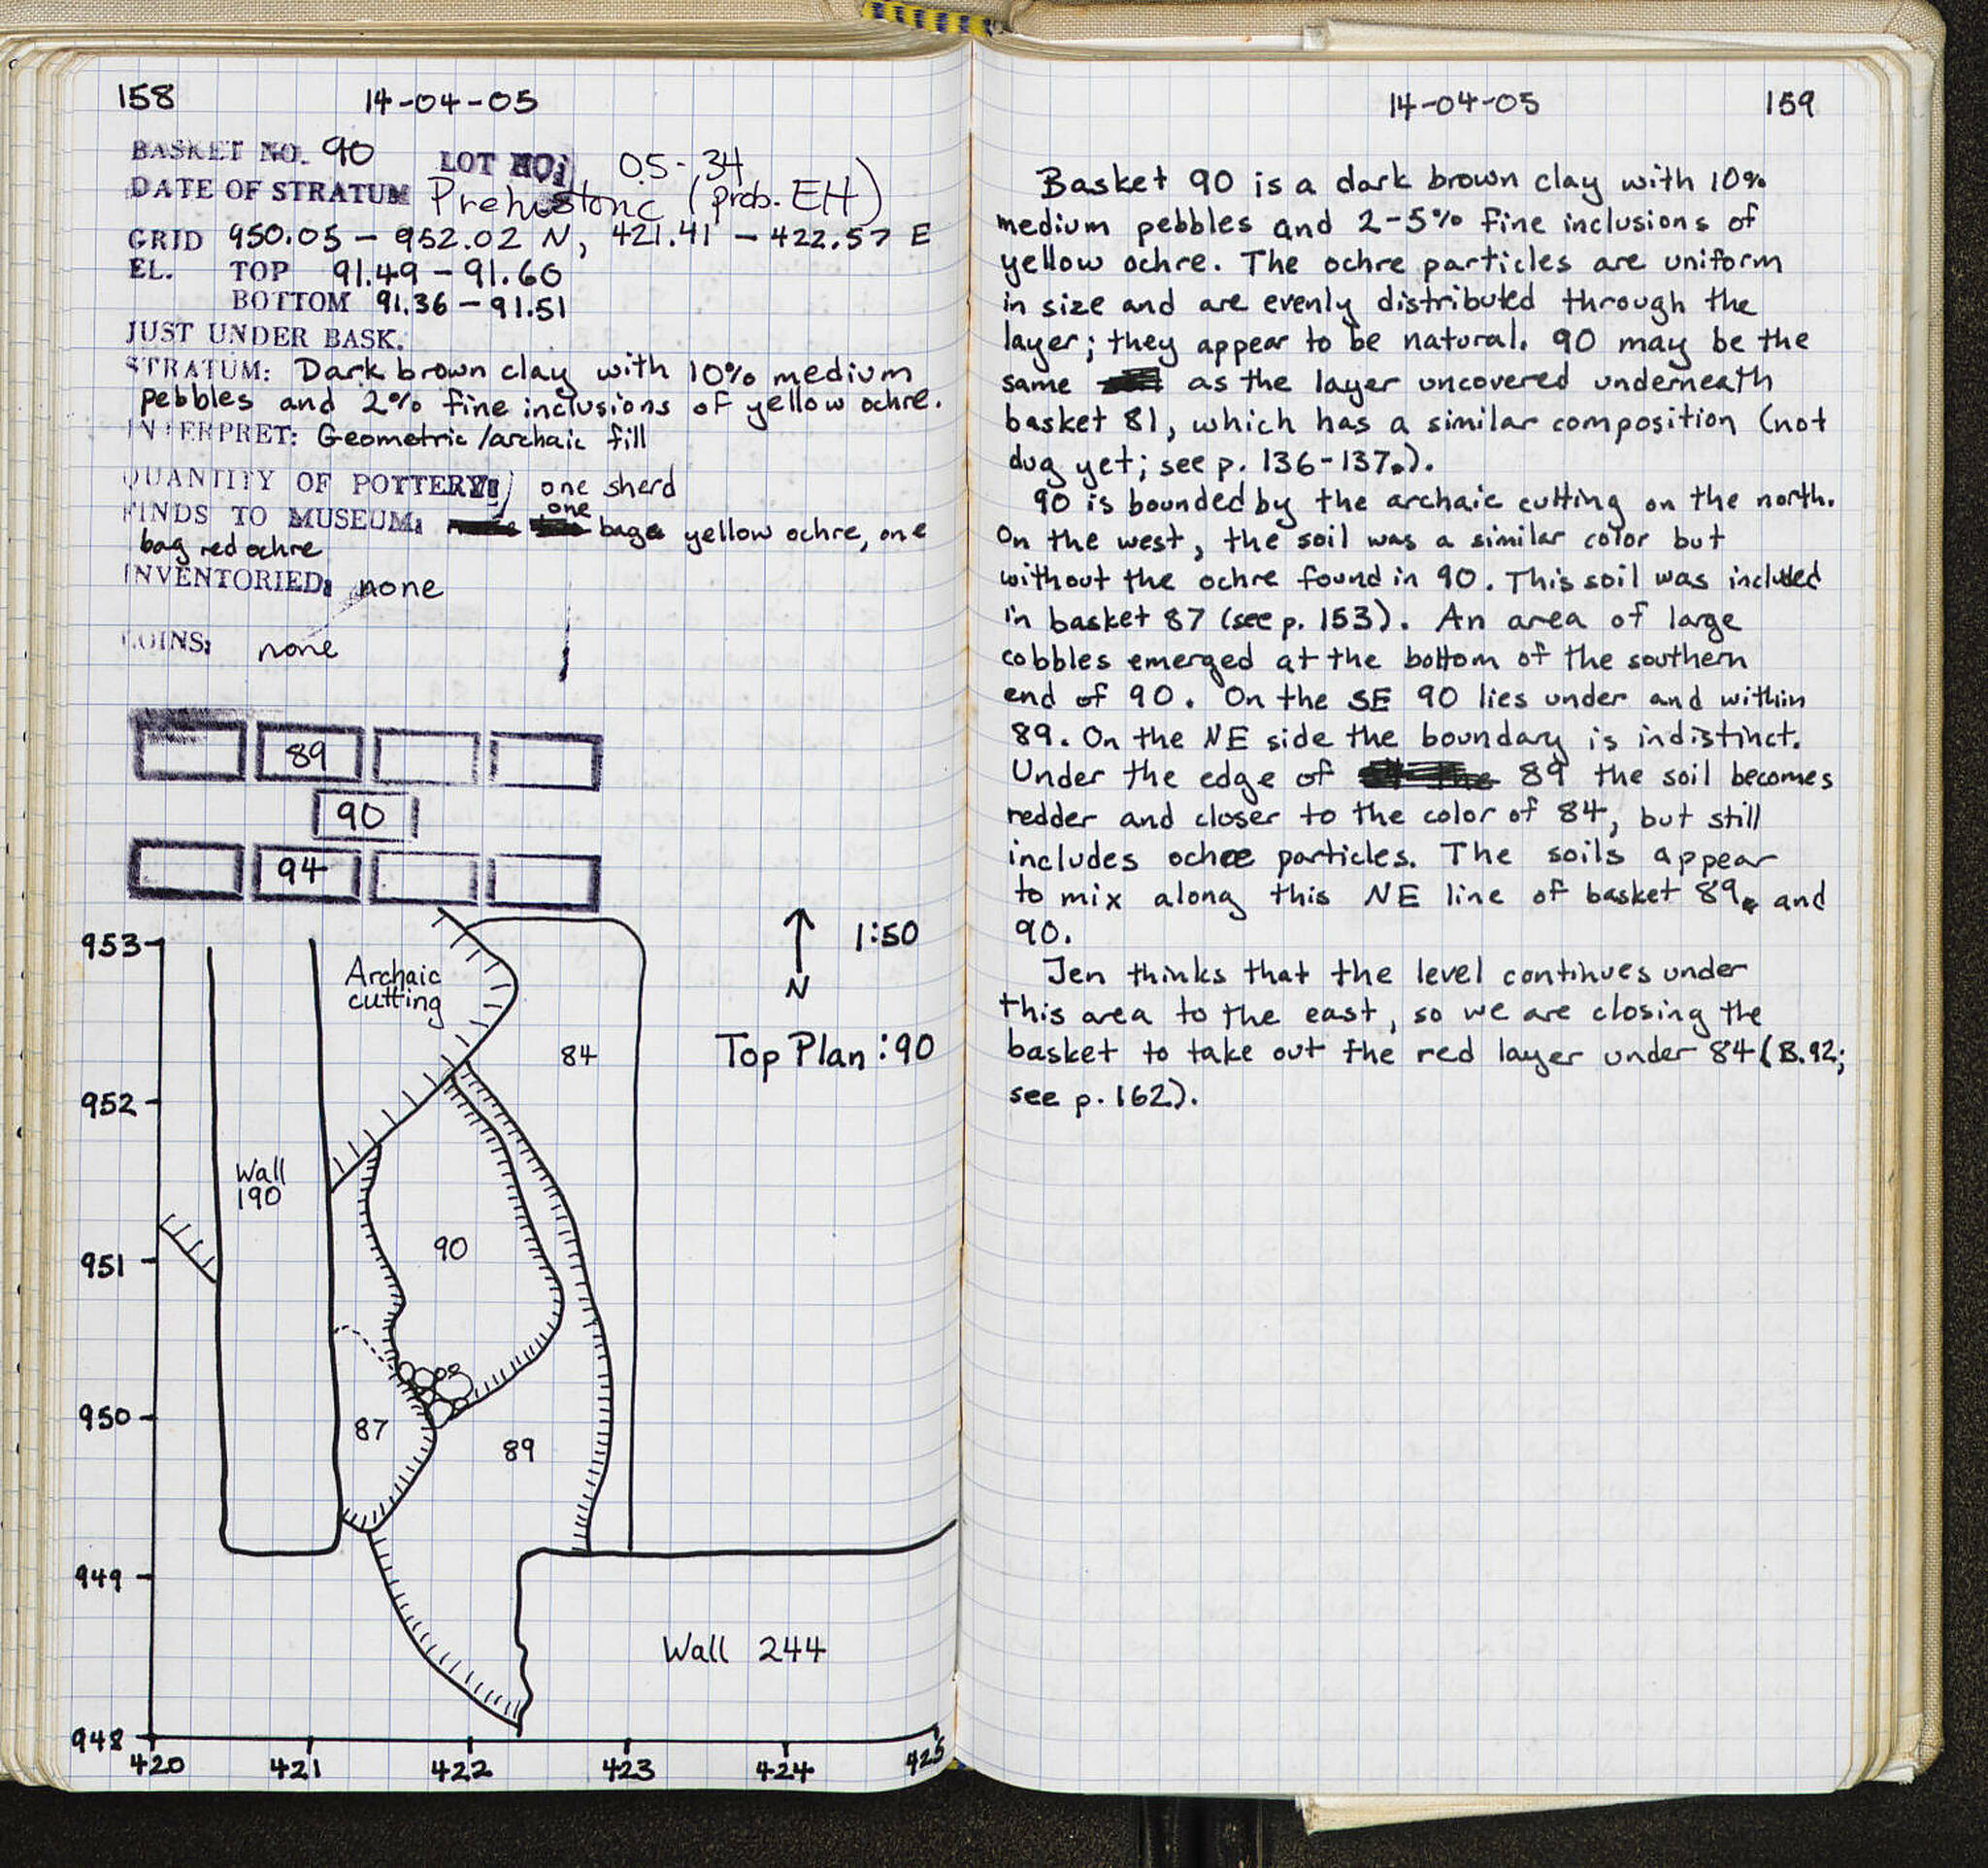 158 14-04-05
BASKET NO. 90 LOT NO: 05-34
DATE OF STRATUM Prehistoric (prob. EH)
GRID 950.05 - 952.02 N, 421.41 - 422.57 E
EL. TOP 91.49 - 91.60
BOTTOM 91.36 - 91.51
JUST UNDER BASK.
STRATUM: Dark brown clay with 10% medium
pebbles and 2% fine inclusions of yellow ochre.
INTERPRET: Geometric/archaic fill
QUANTITY OF POTTERY: one sherd
FINDS TO MUSEUM: one bag yellow ochre, one
bag red ochre
INVENTORIED: none
COINS: none
89
90
94
953
Archaic
cutting
1:50
N
84
Top Plan: 90
952
Wall
190
951
90
950
87
89
949
Wall 244
948
420 421 422 423 424 425
14-04-05 159
Basket 90 is a dark brown clay with 10%
medium pebbles and 2-5% fine inclusions of
yellow ochre. The ochre particles are uniform
in size and are evenly distributed through the
layer; they appear to be natural. 90 may be the
same as the layer uncovered underneath
basket 81, which has a similar composition (not
dug yet; see p. 136-137.).
90 is bounded by the archaic cutting on the north.
On the west, the soil was a similar color but
without the ochre found in 90. This soil was included
in basket 87 (see p. 153). An area of large
cobbles emerged at the bottom of the southern
end of 90. On the SE 90 lies under and within
89. On the NE side the boundary is indistinct.
Under the edge of 89 the soil becomes
redder and closer to the color of 84, but still
includes ochre particles. The soils appear
to mix along this NE line of basket 89 and
90.
Jen thinks that the level continues under
this area to the east, so we are closing the
basket to take out the red layer under 84 (B.92;
see p. 162).